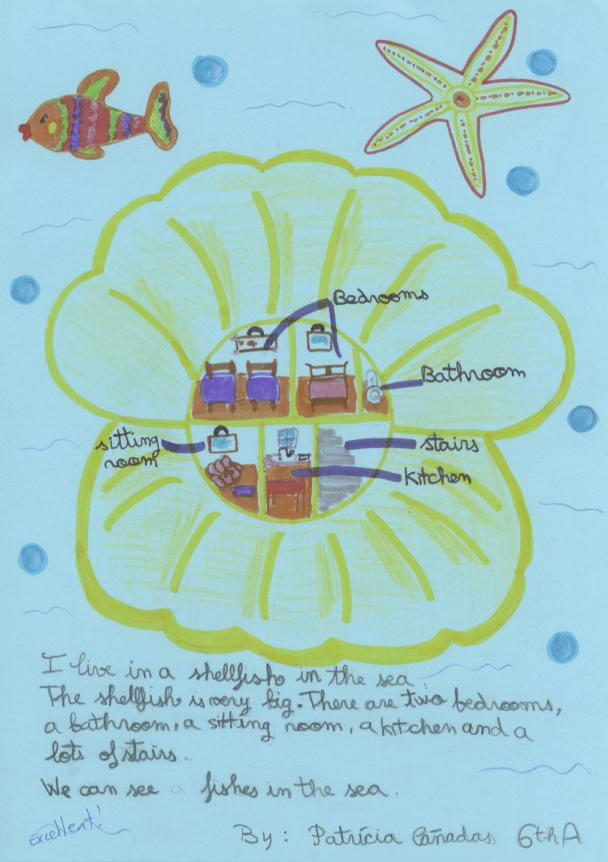 Bedrooms
Bathroom
sitting
room
stairs
kitchen
I live in a shellfish in the sea
The shellfish is very big. There are two bedrooms,
a bathroom, a sitting room, a kitchen and a
lots of stairs.
We can see a fishes in the sea.
Excellent!
By: Patrícia Cañadas 6th A